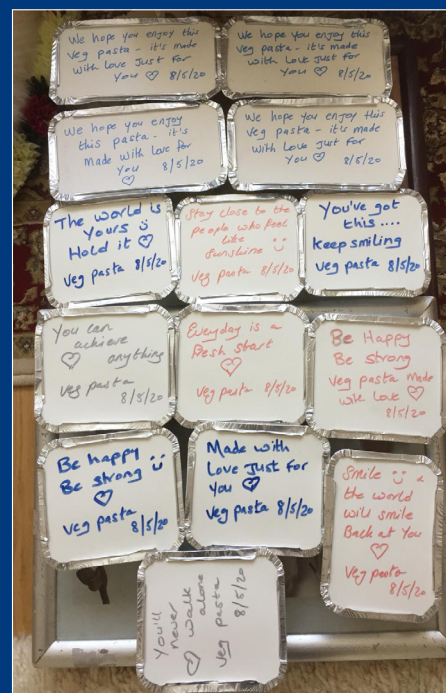 We hope you enjoy this
veg pasta - it's made
with love just for
you ♡ 8/5/20
We hope you enjoy this
veg pasta - it's made
with love just for
you ♡ 8/5/20
We hope you enjoy
this pasta - it's
made with love for
you
♡ 8/5/20
We hope you enjoy this
veg pasta - it's made
with love just for
you ♡ 8/5/20
The world is
yours
Hold it ♡
veg pasta 8/5/20
Stay close to the
people who feel
like
sunshine
veg pasta 8/5/20
You've got
this ....
keep smiling
veg pasta 8/5/20
You can
achieve
♡ anything
veg pasta
8/5/20
Everyday is a
fresh start
♡
veg pasta 8/5/20
Be Happy
Be strong
veg pasta made
with love ♡
8/5/20
Be happy
Be strong
♡
veg pasta
8/5/20
Made with
Love Just for
you ♡
veg pasta 8/5/20
Smile &
the world
will smile
Back at You
♡
veg pasta
8/5/20
You'll
never
walk
♡ alone
veg pasta
8/5/20